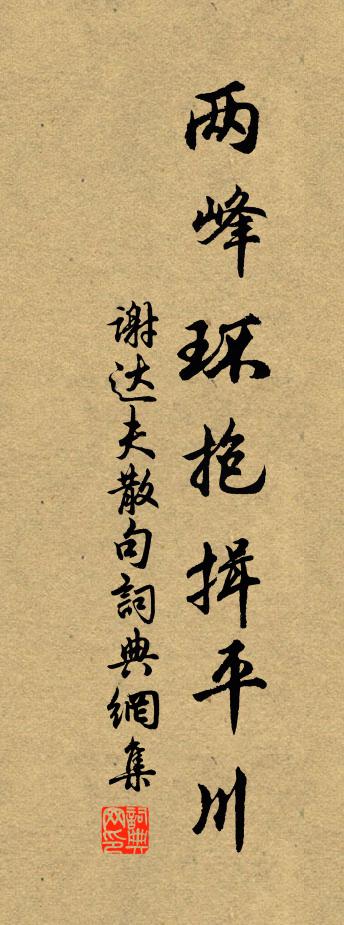 两峰环抱揖平川
谢达夫散句詞典網集
詞典网印